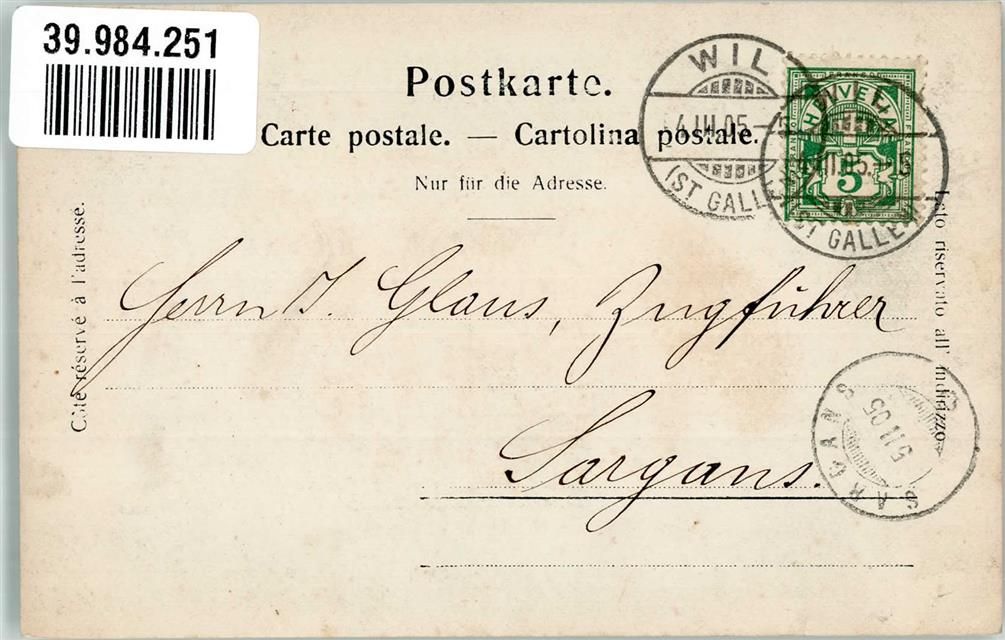 39.984.251
Postkarte.
Carte postale. — Cartolina postale.
Nur für die Adresse.
Côté réservé à l'adresse.
Lato riservato all' indirizzo
WIL
4.III.05.
(ST GALLEN)
FRANCO
HELVETIA
5
III.05.
(ST GALLEN)
Herrn J. Glaus, Zugführer
Sargans.
SARGANS
05